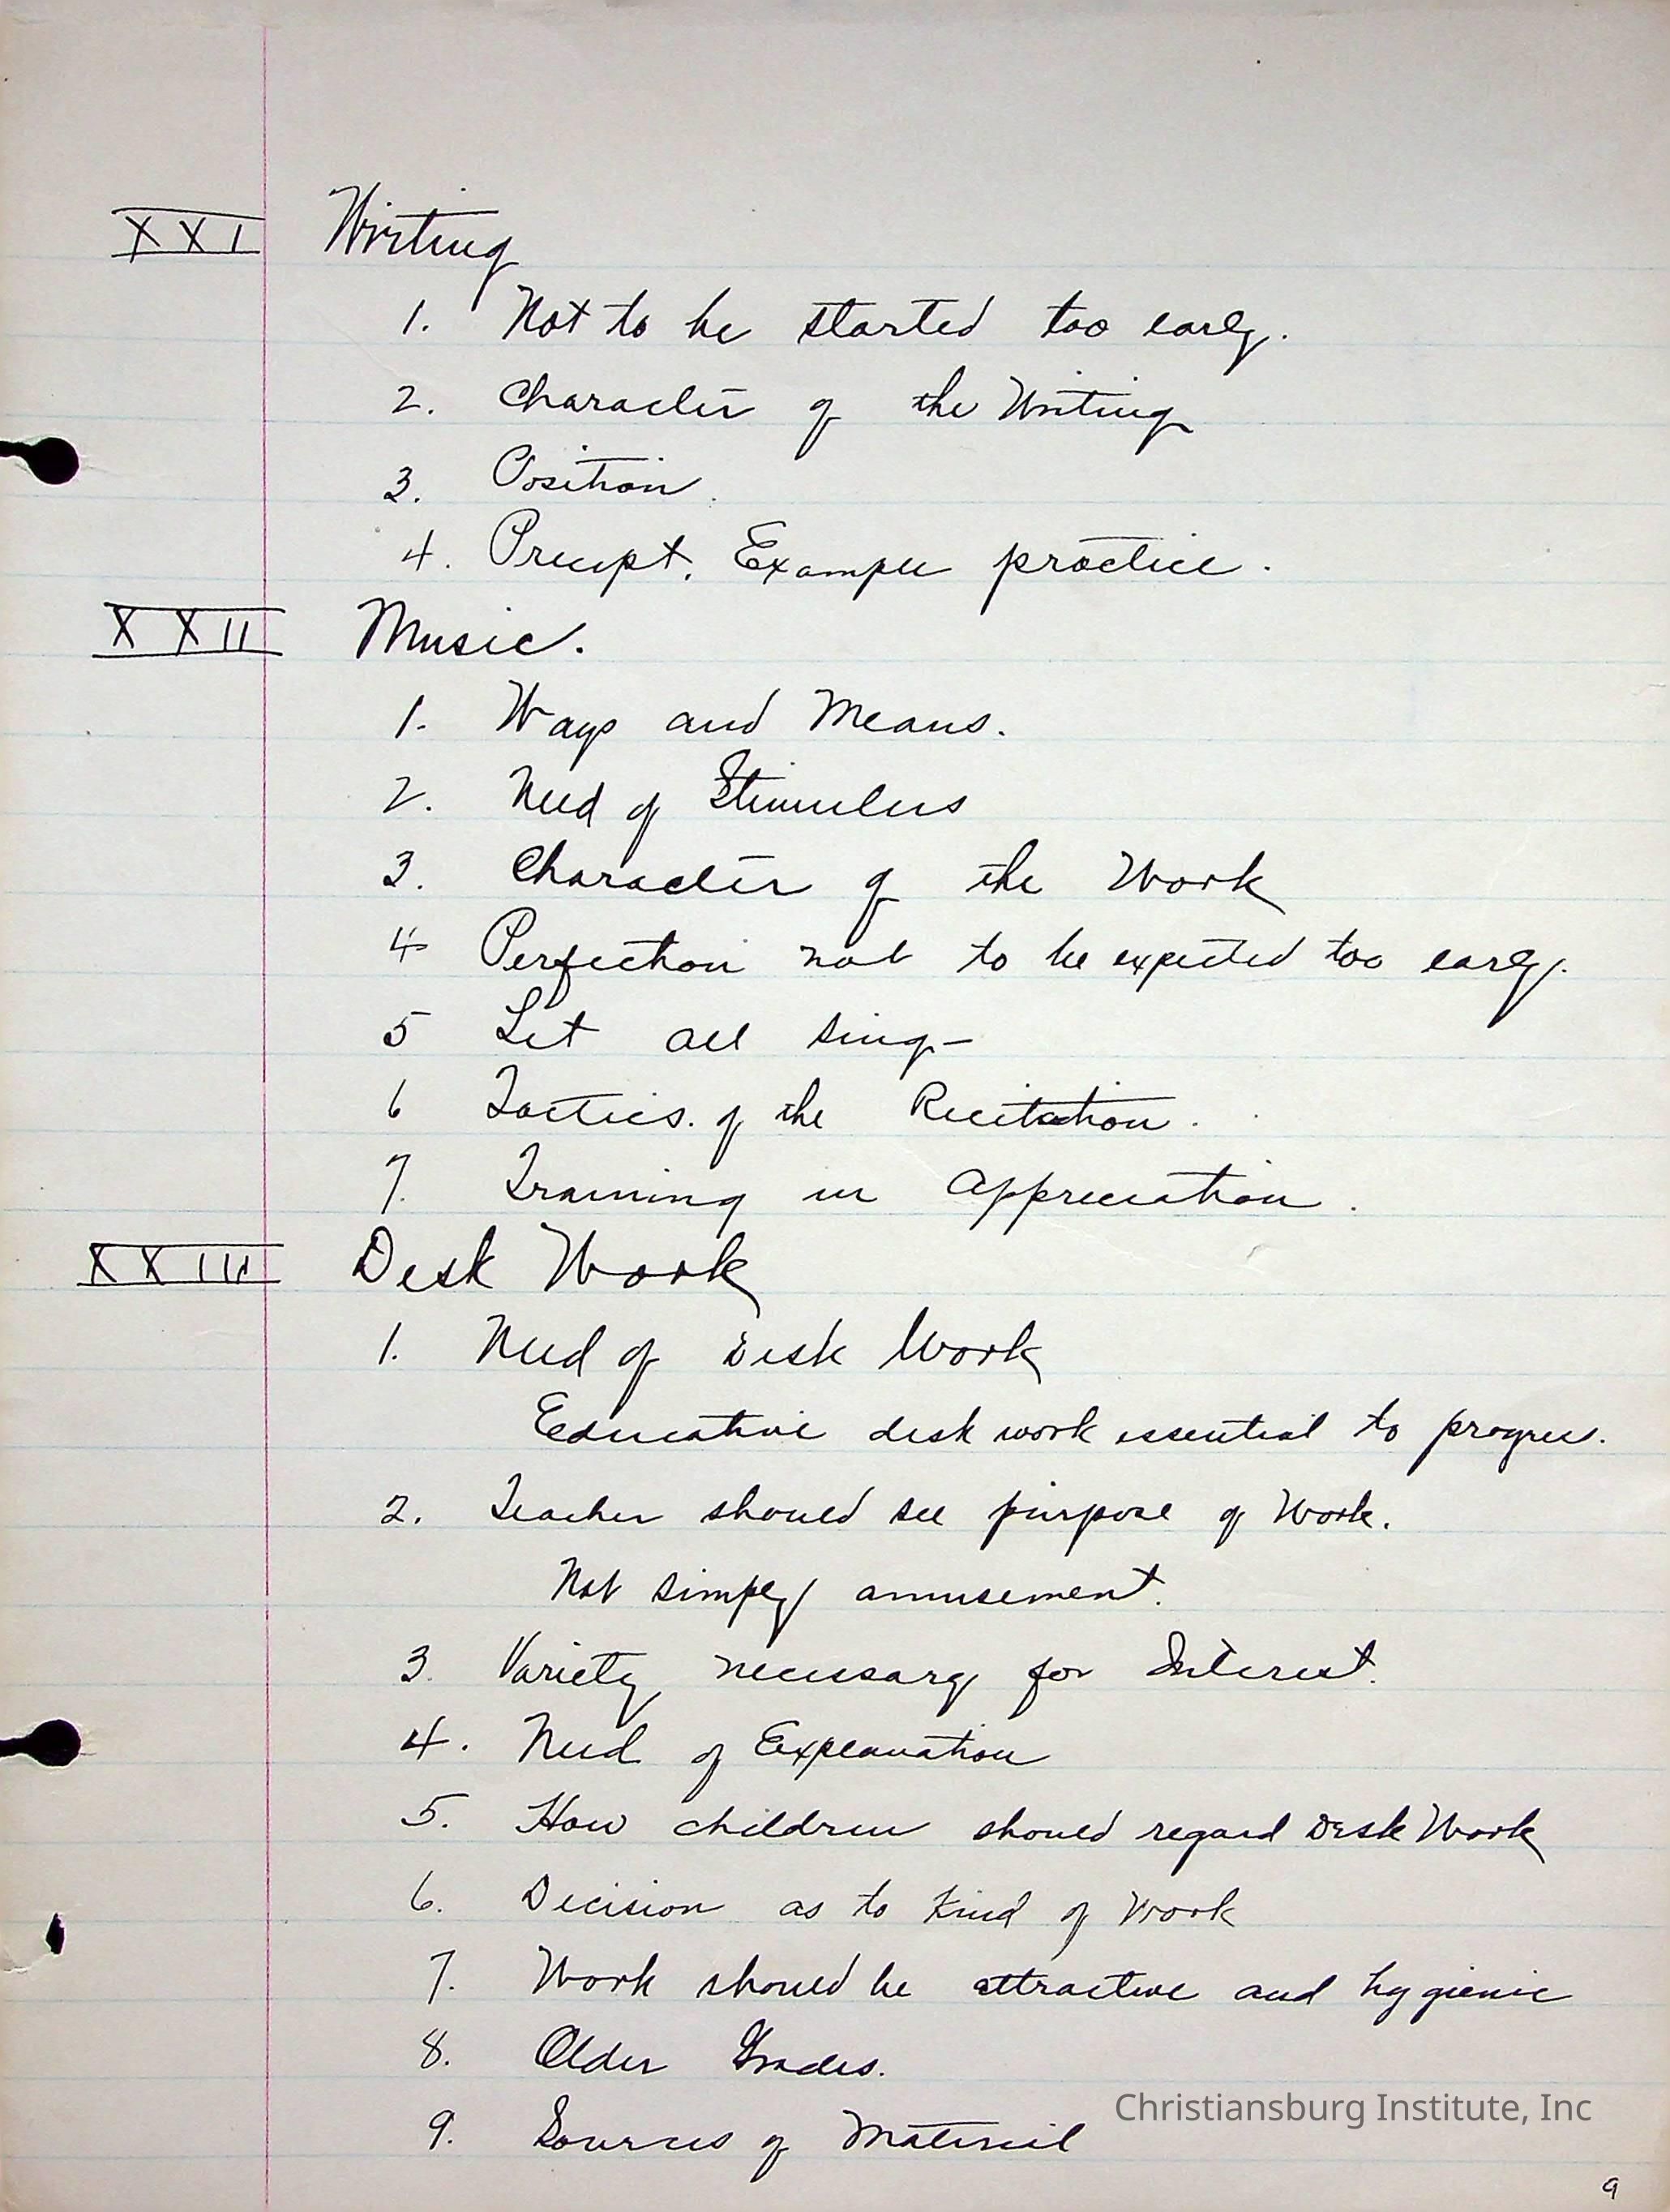 XXI Writing
1. Not to be started too early.
2. Character of the Writing
3. Position.
4. Precept. Example practice.
XXII Music.
1. Ways and Means.
2. Need of Stimulus
3. Character of the Work
4 Perfection not to be expected too early.
5 Let all sing-
6 Tactics. of the Recitation.
7. Training in Appreciation.
XXIII Desk Work
1. Need of Desk Work
Educative desk work essential to progress.
2. Teacher should see purpose of Work.
Not simply amusement.
3. Variety necessary for Interest.
4. Need of Explanation
5. How children should regard Desk Work
6. Decision as to Kind of Work
7. Work should be attractive and hygienic
8. Older Grades.
Christiansburg Institute, Inc
9. Sources of Material
9